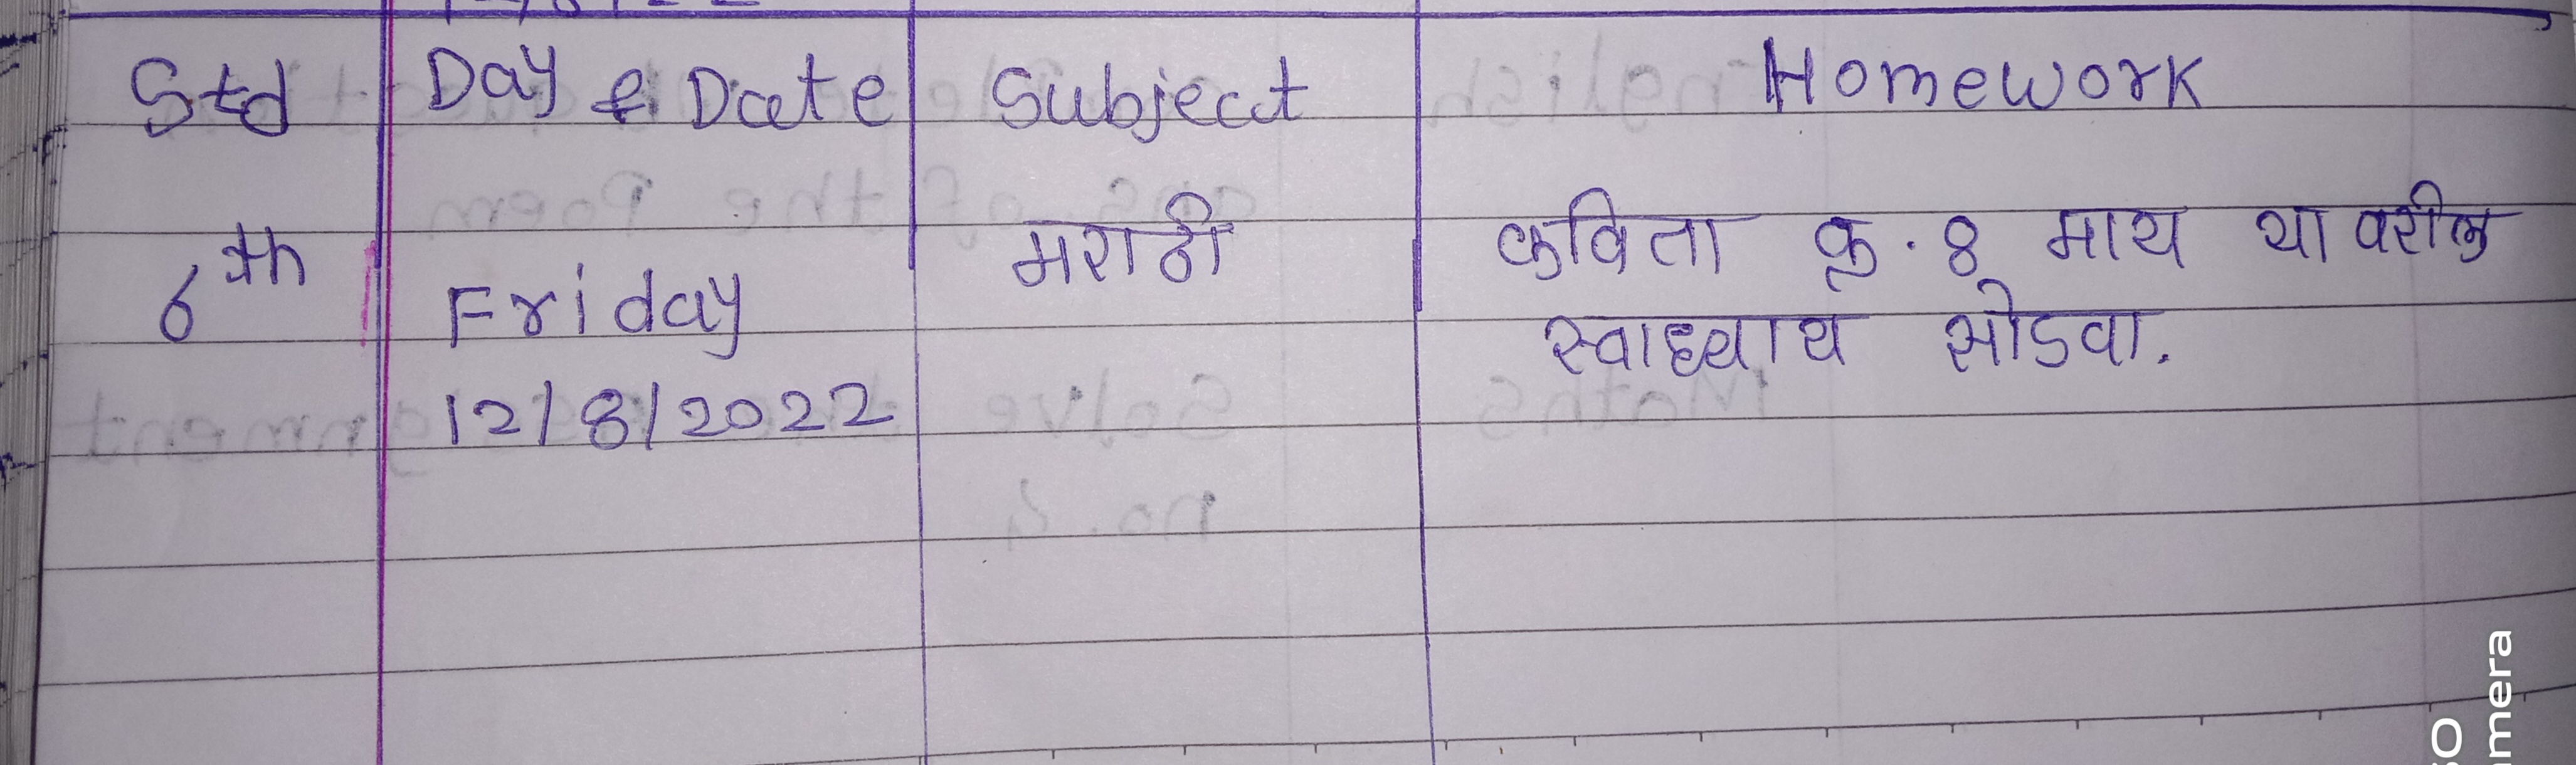 Std Day & Date Subject Homework
6th मराठी कविता क्र. 8 माय या वरील
Friday स्वाध्याय सोडवा.
12/8/2022